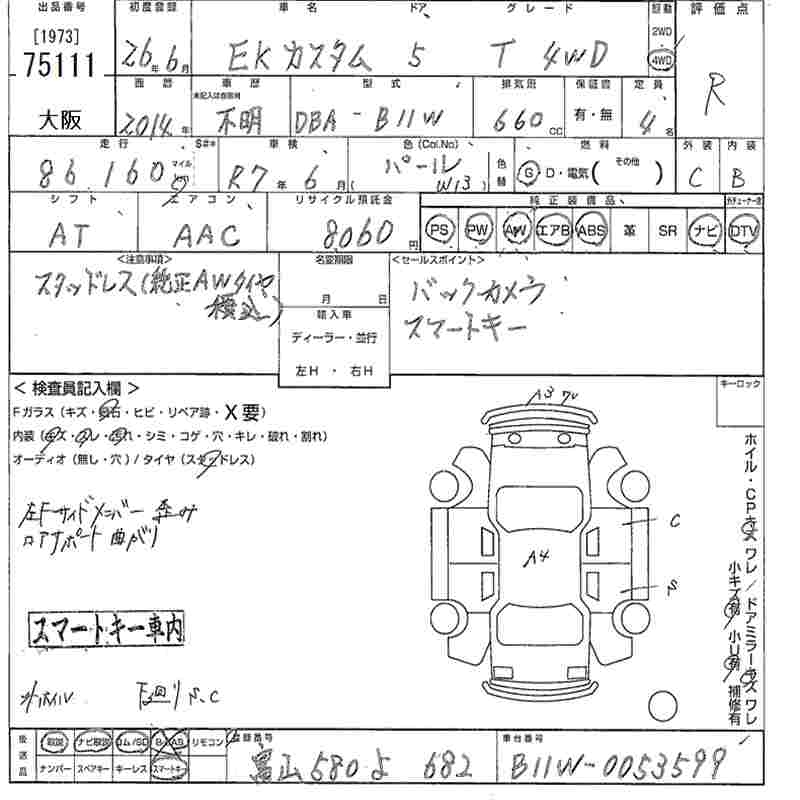 出品番号 初度登録 車名 ドア グレード 駆動 評価点
[1973] 2WD
75111 26年6月 EKカスタム 5 T 4WD 4WD R
西暦 車歴 型式 排気量 保証書 定員
大阪 2014年 不明 DBA-B11W 660cc 有・無 4名
走行 S#* 車検 色(Col.No) 燃料 外装 内装
86160 マイル km R7年6月 (パール W13) 色替 G D・電気( その他 ) C B
シフト エアコン リサイクル預託金 純正装備品
AT AAC 8060円 PS PW AW エアB ABS 革 SR ナビ DTV
<注意事項> 名変期限 <セールスポイント>
スタッドレス(純正AWタイヤ 月 日 バックカメラ
積込) 輸入車 スマートキー
ディーラー・並行
左H・右H
<検査員記入欄> キーロック
Fガラス(キズ・飛石・ヒビ・リペア跡・X要) A3 ワレ
内装(キズ・スレ・汚れ・シミ・コゲ・穴・キレ・破れ・割れ)
オーディオ(無し・穴)/タイヤ(スタッドレス)
左Fサイドメンバー歪み C
コアサポート曲がり A4
S
スマートキー車内
外ホイル 下廻りS.C
ホイル・CPキズ ワレ/ドアミラーキズ ワレ
小キズ有 小U有 補修有
後送品 取説 ナビ取説 ロム/SD B-CAS リモコン 登録番号 車台番号
ナンバー スペアキー キーレス スマートキー 富山 580 よ 682 B11W-0053599